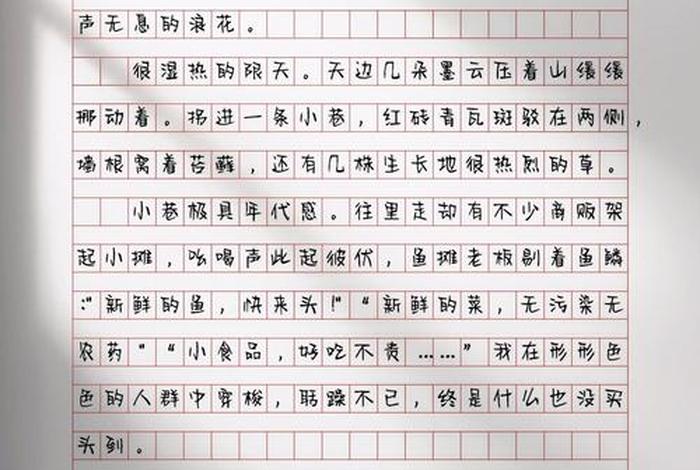 声无息的浪花。
很湿热的限天。天边几朵墨云压着山缓缓
挪动着。拐进一条小巷，红砖青瓦斑驳在两侧，
墙根窝着苔藓，还有几株生长地很热烈的草。
小巷极具年代感。往里走却有不少商贩架
起小摊，吆喝声此起彼伏，鱼摊老板剔着鱼鳞
:“新鲜的鱼，快来头!”“新鲜的菜，无污染无
农药”“小食品，好吃不贵……”我在形形色
色的人群中穿梭，聒躁不已，终是什么也没买
头到。